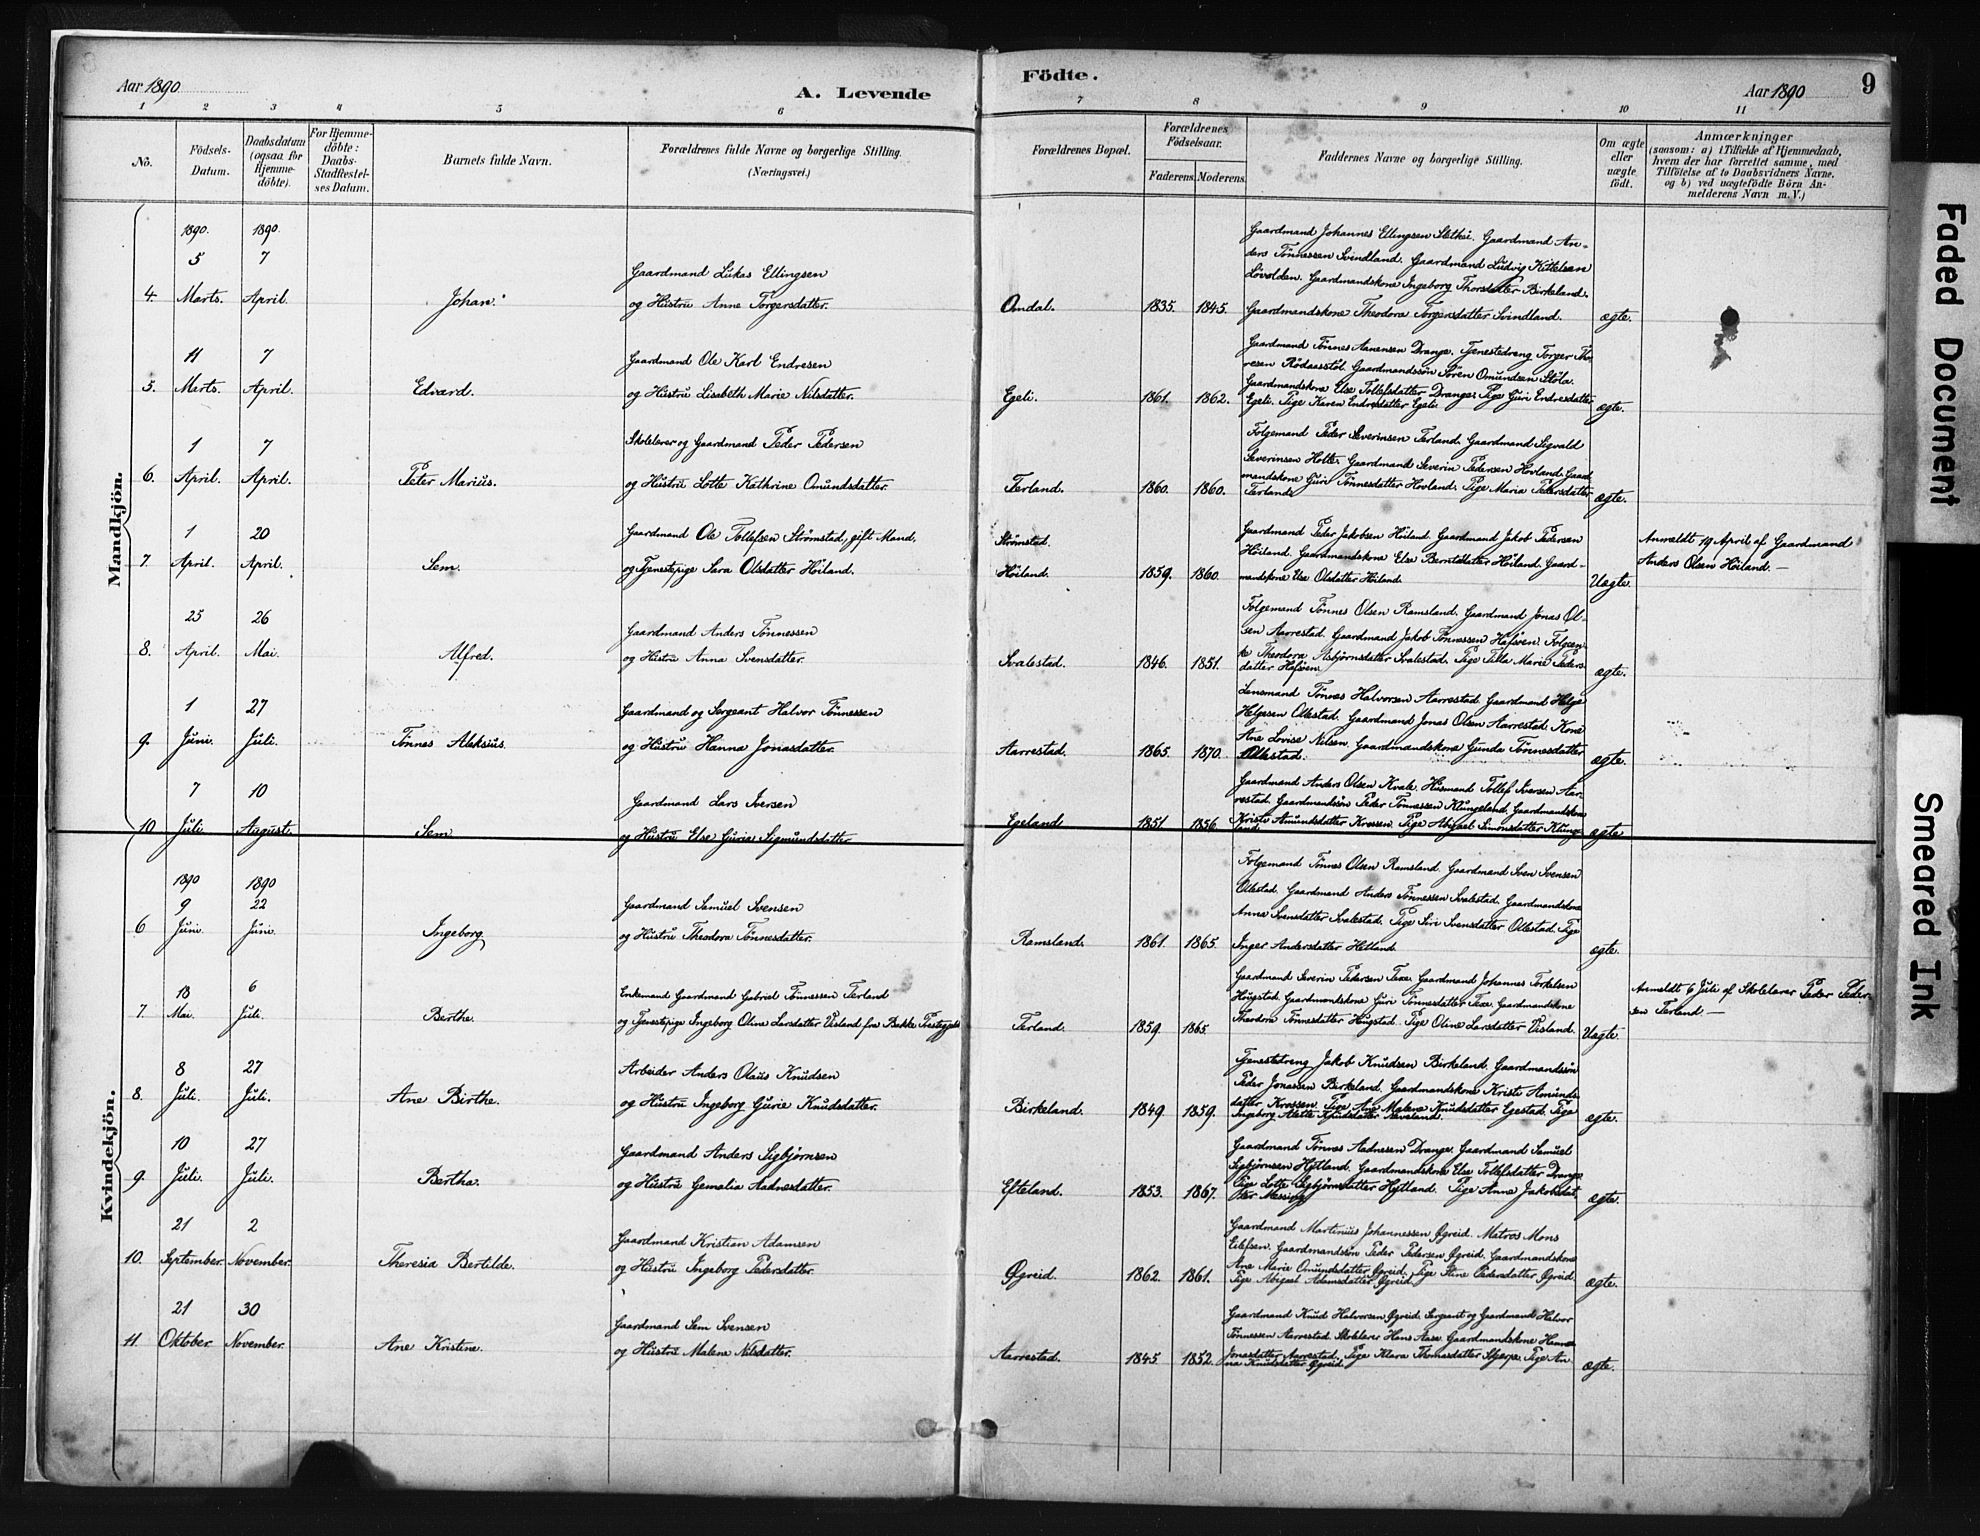 Aar 1890
A. Levende
Födte.
Aar 1890
9
1 2 3 4 5 6 7 8 9 10 11
No.
Födsels-
Datum.
Daabsdatum
(ogsaa for
Hjemme-
döbte).
For Hjemme-
döbte:
Daabs-
Stadfestel-
ses Datum.
Barnets fulde Navn.
Forældrenes fulde Navne og borgerlige Stilling.
(Næringsvei.)
Forældrenes Bopæl.
Forældrenes
Födselsaar.
Faderens.
Moderens.
Faddernes Navne og borgerlige Stilling.
Om ægte
eller
uægte
födt.
Anmærkninger
(saasom: a) i Tilfælde af Hjemmedaab,
hvem der har forrettet samme, med
Tilföielse af to Daabsvidners Navne,
og b) ved uægtefödte Börn An-
melderens Navn m. V.)
Mandkjön.
4. 1890. 5 Marts. 1890. 7 April. Johan.
Gaardmand Lukas Ellingsen
og Hustru Anne Torgersdatter.
Omdal. 1835. 1845.
Gaardmand Johannes Ellingsen Slethei. Gaardmand An-
ders Tönnessen Svindland. Gaardmand Ludvig Kittelsen
Lövolden. Gaardmandskone Ingeborg Thorsdatter Birkeland.
Gaardmandskone Theodora Torgersdatter Svindland.
ægte.
5. 11 Marts. 7 April. Edvard.
Gaardmand Ole Karl Endresen
og Hustru Lisabeth Marie Nilsdatter.
Egeli. 1861. 1862.
Gaardmand Tönnes Aanensen Drange. Tjenestedreng Torger Tho-
resen Rödaasstöl. Gaardmandssön Sören Omundsen Stöla.
Gaardmandskone Else Tollefsdatter Drange. Pige Guri Endresdatter
Egeli. Pige Karen Endresdatter Egeli.
ægte.
6. 1 April. 7 April. Peter Marius.
Skolelærer og Gaardmand Peder Pedersen
og Hustru Lotte Kathrine Omundsdatter.
Ferland. 1860. 1860.
Folgemand Peder Severinsen Ferland. Gaardmand Sigvald
Severinsen Holte. Gaardmand Severin Pedersen Hovland. Gaard-
mandskone Guri Tönnesdatter Hovland. Pige Maria Pedersdatter
Ferland.
ægte.
7. 1 April. 20 April. Sem.
Gaardmand Ole Tollefsen Strömstad, gift Mand,
og Tjenestepige Sara Olsdatter Höiland.
Strömstad.
Höiland. 1859. 1860.
Gaardmand Peder Jakobsen Höiland. Gaardmand Jakob Pedersen
Höiland. Gaardmandskone Else Berntsdatter Höiland. Gaard-
mandskone Else Olsdatter Höiland.
Uægte.
Anmeldt 19 April af Gaardmand
Anders Olsen Höiland. —
8. 25 April. 26 Mai. Alfred.
Gaardmand Anders Tönnessen
og Hustru Anna Svensdatter.
Svalestad. 1846. 1851.
Folgemand Tönnes Olsen Ramsland. Gaardmand Jonas Ol-
sen Aarrestad. Gaardmand Jakob Tönnessen Hafsöen. Folgeen-
ke Theodora Asbjörnsdatter Svalestad. Pige Tilla Marie Peders-
datter Hafsöen.
ægte.
9. 1 Juni. 27 Juli. Tönnes Aleksius.
Gaardmand og Sergeant Halvor Tönnessen
og Hustru Hanna Jonasdatter.
Aarrestad. 1865. 1870.
Lensmand Tönnes Halvorsen Aarrestad. Gaardmand Helge
Helgesen Ollestad. Gaardmand Jonas Olsen Aarrestad. Kone
Ane Lovise Nilsen. Gaardmandskone Gunda Tönnesdatter
Ollestad.
ægte.
10. 7 Juli. 10 August. Sem
Gaardmand Lars Iversen
og Hustru Else Gurie Sigmundsdatter
Egeland 1851 1856
Gaardmand Anders Olsen Kvale. Husmand Tollef Iversen Aar-
restad. Gaardmandssön Peder Tönnessen Klungeland. Gaardmandskone
Kristi Amundsdatter Krossen. Pige Abigael Simonsdatter Klunge-
land.
ægte
Kvindekjön.
6 1890 9 Juni. 1890 22 Juni. Ingeborg
Gaardmand Samuel Svensen
og Hustru Theodora Tönnesdatter.
Ramsland. 1861. 1865.
Folgemand Tönnes Olsen Ramsland. Gaardmand Sven Svensen
Ollestad. Gaardmand Anders Tönnessen Svalestad. Gaardmandskone
Anna Svensdatter Svalestad. Pige Siri Svensdatter Ollestad. Pige
Inger Andersdatter Hetland.
ægte.
7 18 Mai. 6 Juli. Berthe.
Enkemand Gaardmand Gabriel Tönnessen Ferland
og Tjenestepige Ingeborg Oline Larsdatter Visland fra Bakke Præstegjeld
Ferland. 1859. 1865.
Gaardmand Severin Pedersen Texe. Gaardmand Johannes Torkelsen
Hugstad. Gaardmandskone Guri Tönnesdatter Texe. Gaardmandskone
Theodora Tönnesdatter Hugstad. Pige Oline Larsdatter Visland.
Uægte.
Anmeldt 6 Juli af Skolelærer Peder Peder-
sen Ferland —
8. 8 Juli. 27 Juli. Ane Birthe.
Arbeider Anders Olaus Knudsen
og Hustru Ingeborg Gurie Knudsdatter.
Birkeland. 1849. 1859.
Tjenestedreng Jakob Knudsen Birkeland. Gaardmandssön
Peder Jonassen Birkeland. Gaardmandskone Kristi Amunds-
datter Krossen. Pige Ane Malene Knudsdatter Egestad. Pige
Ingeborg Alette Knudsdatter
ægte.
9. 10 Juli. 27 Juli. Bertha.
Gaardmand Anders Sigbjörnsen
og Hustru Gemalia Aadnesdatter.
Efteland. 1853. 1867.
Gaardmand Tönnes Aadnesen Drange. Gaardmand Samuel
Sigbjörnsen Hytland. Gaardmandskone Else Tollefsdatter Drange.
Pige Lotte Sigbjörnsdatter Hytland. Pige Anne Jakobsdat-
ter Messing.
ægte.
10. 21 September. 2 November. Theresia Bertilde.
Gaardmand Kristian Adamsen
og Hustru Ingeborg Pedersdatter.
Øgreid. 1862. 1861.
Gaardmand Martinius Johannessen Øgreid. Matros Mons
Eilefsen. Gaardmandssön Peder Pedersen Øgreid. Gaardmandskone
Ane Marie Omundsdatter Øgreid. Pige Stine Pedersdatter Øgreid.
Pige Abigael Adamsdatter Øgreid.
ægte.
11. 21 Oktober. 30 November. Ane Kristine.
Gaardmand Sem Svensen
og Hustru Malene Nilsdatter.
Aarrestad. 1845. 1852.
Gaardmand Knud Halvorsen Øgreid. Sergeant og Gaardmand Halvor
Tönnessen Aarrestad. Skolelærer Hans Aase. Gaardmandskone Hanna
Jonasdatter Aarrestad. Pige Klara Thomasdatter Skjerpe. Pige An-
na Knudsdatter Øgreid.
ægte.
Faded Document
Smeared Ink